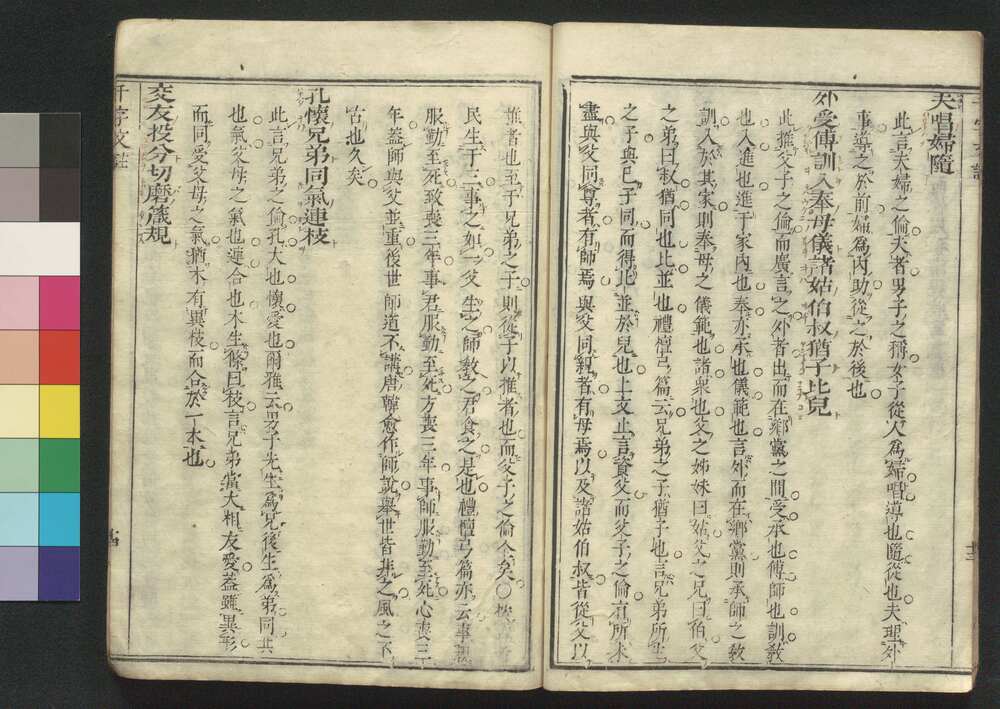 夫唱婦隨
此言夫婦之倫夫者男子之稱女子從人爲婦唱導也隨從也夫理外
事導之於前婦爲內助從之於後也
外受傅訓入奉母儀諸姑伯叔猶子比兒
此推父子之倫而廣言之外者出而在鄉黨之間受承也傅師也訓教
也入進也進于家內也奉亦承也儀範也言外而在鄉黨則承師之教
訓入於其家則奉母之儀範也諸衆也父之姊妹曰姑父之兄曰伯父
之弟曰叔猶同也比並也禮檀弓篇云兄弟之子猶子也言兄弟所生
之子與已子同而得比並於兒也上文止言資父而父子之倫有所未
盡與父同尊者有師焉與父同親者有母焉以及諸姑伯叔皆從父以
推者也至于兄弟之子則從子以推者也而父子之倫全矣○
民生于三事之如一父生之師教之君食之是也禮檀弓篇亦云事親
服勤至死致喪三年事君服勤至死方喪三年事師服勤至死心喪三
年蓋師與父並重後世師道不講唐韓愈作師說舉世皆非之風之不
古也久矣
孔懷兄弟同氣連枝
此言兄弟之倫孔大也懷愛也爾雅云男子先生爲兄後生爲弟同共
也氣父母之氣也連合也木生條曰枝言兄弟當大相友愛蓋雖異形
而同受父母之氣猶木有異枝而合於一本也
交友投分切磨箴規
千字文註